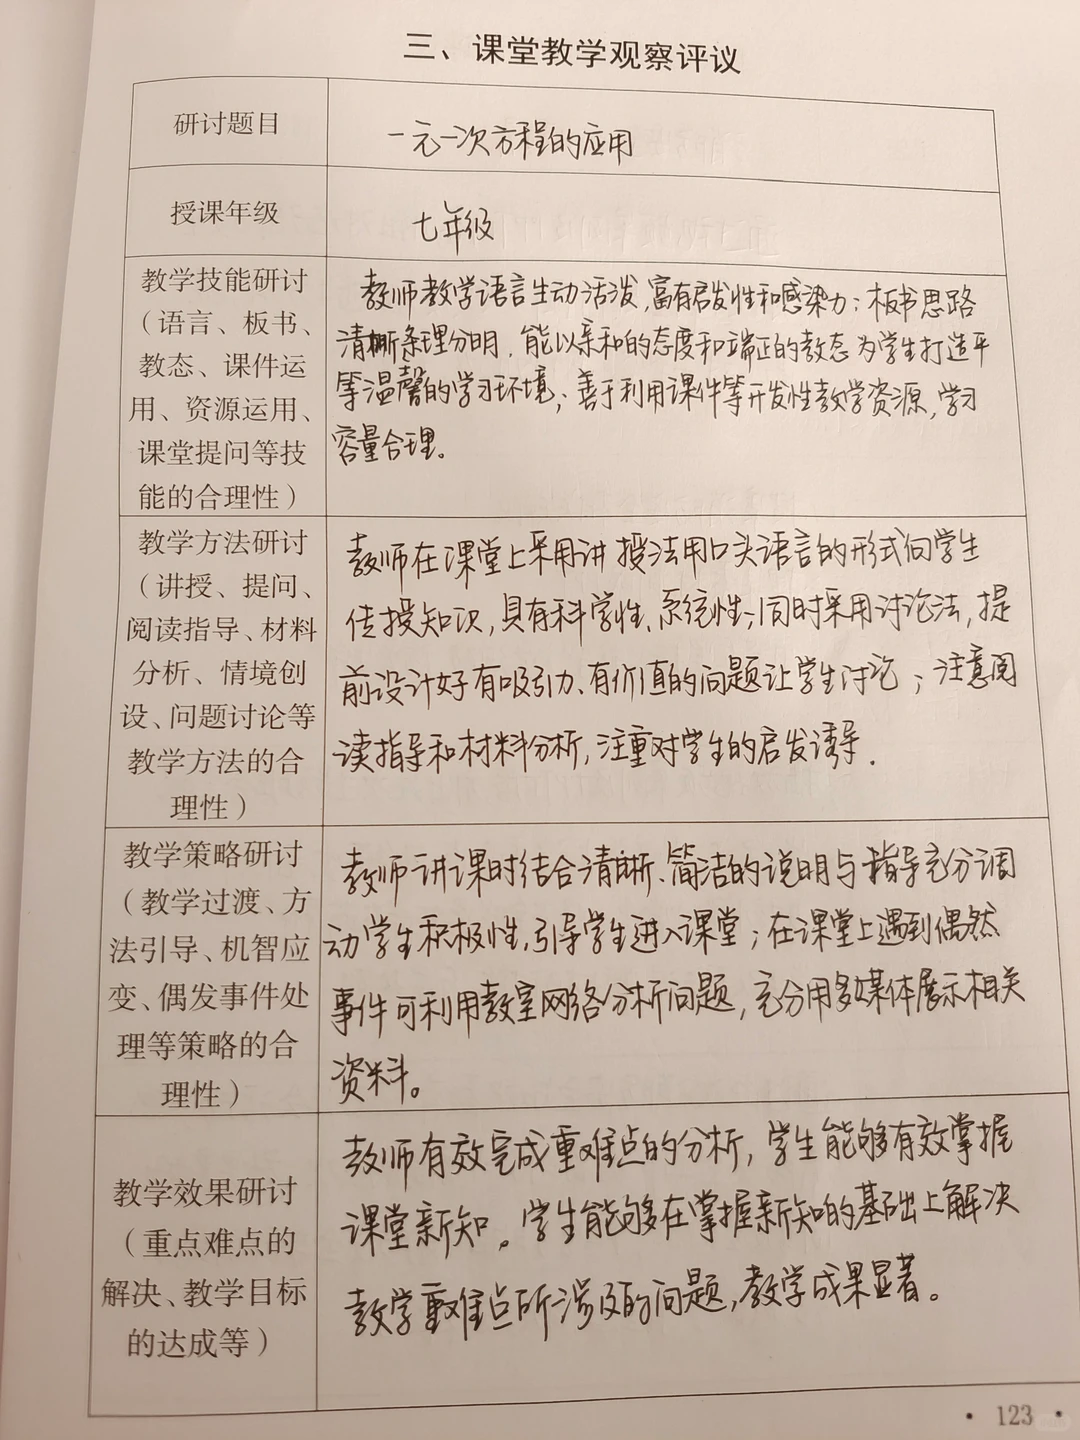 三、课堂教学观察评议
研讨题目
一元一次方程的应用
授课年级
七年级
教学技能研讨
（语言、板书、
教态、课件运
用、资源运用、
课堂提问等技
能的合理性）
教师教学语言生动活泼,富有启发性和感染力;板书思路
清晰条理分明,能以亲和的态度和端正的教态为学生打造平
等温馨的学习环境;善于利用课件等开发性教学资源,学习
容量合理。
教学方法研讨
（讲授、提问、
阅读指导、材料
分析、情境创
设、问题讨论等
教学方法的合
理性）
教师在课堂上采用讲授法用口头语言的形式向学生
传授知识,具有科学性、系统性;同时采用讨论法,提
前设计好有吸引力、有价值的问题让学生讨论;注意阅
读指导和材料分析,注重对学生的启发诱导.
教学策略研讨
（教学过渡、方
法引导、机智应
变、偶发事件处
理等策略的合
理性）
教师讲课时结合清晰、简洁的说明与指导充分调
动学生积极性,引导学生进入课堂;在课堂上遇到偶然
事件可利用教室网络分析问题,充分用多媒体展示相关
资料。
教学效果研讨
（重点难点的
解决、教学目标
的达成等）
教师有效完成重难点的分析,学生能够有效掌握
课堂新知。学生能够在掌握新知的基础上解决
教学重难点所涉及的问题,教学成果显著。
• 123 •